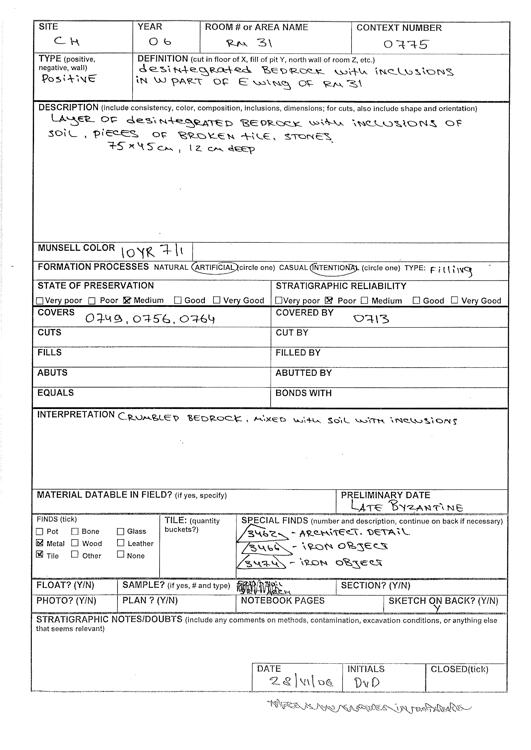 SITE YEAR ROOM # or AREA NAME CONTEXT NUMBER
CH 06 RM 31 0775
TYPE (positive, negative, wall) DEFINITION (cut in floor of X, fill of pit Y, north wall of room Z, etc.)
POSITIVE desintegrated BEDROCK with INCLUSIONS
IN W PART OF E WING OF RM 31
DESCRIPTION (include consistency, color, composition, inclusions, dimensions; for cuts, also include shape and orientation)
LAYER OF desintegrated BEDROCK with INCLUSIONS OF
SOIL, PIECES OF BROKEN TILE, STONES.
75 x 45 cm, 12 cm DEEP
MUNSELL COLOR 10YR 7/1
FORMATION PROCESSES NATURAL ARTIFICIAL (circle one) CASUAL INTENTIONAL (circle one) TYPE: Filling
STATE OF PRESERVATION STRATIGRAPHIC RELIABILITY
☐ Very poor ☐ Poor ☒ Medium ☐ Good ☐ Very Good ☐ Very poor ☒ Poor ☐ Medium ☐ Good ☐ Very Good
COVERS 0749, 0756, 0764 COVERED BY 0713
CUTS CUT BY
FILLS FILLED BY
ABUTS ABUTTED BY
EQUALS BONDS WITH
INTERPRETATION CRUMBLED BEDROCK, MIXED with SOIL with INCLUSIONS
MATERIAL DATABLE IN FIELD? (if yes, specify) PRELIMINARY DATE
LATE BYZANTINE
FINDS (tick) TILE: (quantity buckets?) SPECIAL FINDS (number and description, continue on back if necessary)
☐ Pot ☐ Bone ☐ Glass 3462 - ARCHITECT. DETAIL
☒ Metal ☐ Wood ☐ Leather 3466 - IRON OBJECT
☒ Tile ☐ Other ☐ None 3474 - IRON OBJECT
FLOAT? (Y/N) SAMPLE? (if yes, # and type) SECTION? (Y/N)
PHOTO? (Y/N) PLAN ? (Y/N) NOTEBOOK PAGES SKETCH ON BACK? (Y/N)
Y
STRATIGRAPHIC NOTES/DOUBTS (include any comments on methods, contamination, excavation conditions, or anything else that seems relevant)
DATE INITIALS CLOSED(tick)
28/VI/06 DVD